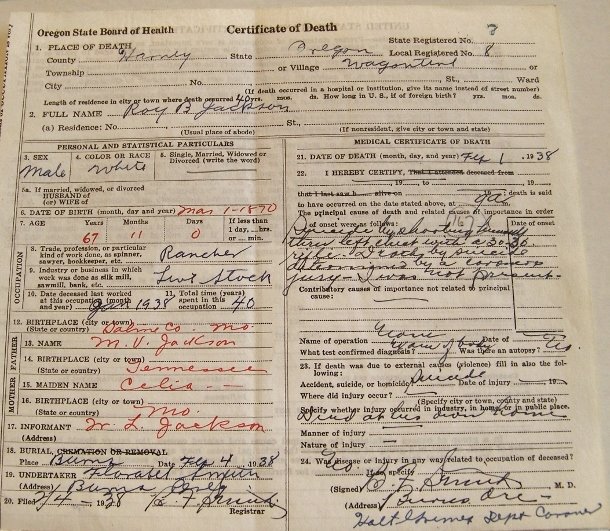 Oregon State Board of Health Certificate of Death 7
State Registered No.
1. PLACE OF DEATH Local Registered No. 8
County Harney State Oregon
Township or Village Wagontire or
City No. St., Ward
(If death occurred in a hospital or institution, give its name instead of street number)
Length of residence in city or town where death occurred 40 yrs. mos. ds. How long in U. S., if of foreign birth? yrs. mos. ds.
2. FULL NAME Roy B Jackson
(a) Residence: No. St.,
(Usual place of abode) (If nonresident, give city or town and state)
PERSONAL AND STATISTICAL PARTICULARS
3. SEX 4. COLOR OR RACE 5. Single, Married, Widowed or Divorced (write the word)
Male White
5a. If married, widowed, or divorced
HUSBAND of
(or) WIFE of
6. DATE OF BIRTH (month, day, and year) Mar 1-1870
7. AGE Years Months Days If less than 1 day,
hrs. or min.
67 11 0
OCCUPATION
8. Trade, profession, or particular kind of work done, as spinner, sawyer, bookkeeper, etc. Rancher
9. Industry or business in which work was done as silk mill, sawmill, bank, etc. Live Stock
10. Date deceased last worked at this occupation (month and year) Jan 1938 11. Total time (years) spent in this occupation 40
12. BIRTHPLACE (city or town) Co. Mo.
(State or country)
FATHER
13. NAME M. V. Jackson
14. BIRTHPLACE (city or town)
(State or country) Tennessee
MOTHER
15. MAIDEN NAME Celia —
16. BIRTHPLACE (city or town)
(State or country) Mo.
17. INFORMANT W. L. Jackson
(Address)
18. BURIAL, CREMATION OR REMOVAL
Place Burns Date Feb 4 1938
19. UNDERTAKER
(Address) Burns Oreg
20. Filed 2/4 1938
Registrar
MEDICAL CERTIFICATE OF DEATH
21. DATE OF DEATH (month, day, and year) Feb 1 1938
22. I HEREBY CERTIFY, That I attended deceased from
, 19 , to , 19
that I last saw h alive on , 19 death is said
to have occurred on the date stated above, at
The principal cause of death and related causes of importance in order of onset were as follows: Date of onset
by shooting himself
thru left chest with a 30-30
rifle.
by a coroners
jury — I was not present.
Contributory causes of importance not related to principal cause:
Name of operation None Date of
What test confirmed diagnosis? View of body Was there an autopsy? No
23. If death was due to external causes (violence) fill in also the following:
Accident, suicide, or homicide? Suicide Date of injury — 19
Where did injury occur?
(Specify city or town, county and state)
Specify whether injury occurred in industry, in home, or in public place.
Manner of injury —
Nature of injury —
24. Was disease or injury in any way related to occupation of deceased?
No If so, specify
(Signed) M. D.
(Address) Burns Ore —
Dept Coroner